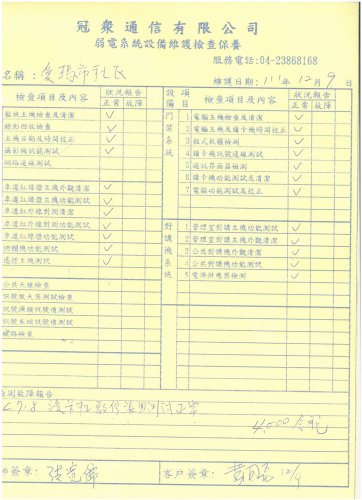 冠眾通信有限公司
弱電系統設備維護檢查保養
服務電話:04-23868168
名稱:
維護日期:111年12月9日
檢查項目及內容 狀況報告 正常 故障
設備 檢查項目及內容 狀況報告 正常 故障
監視主機檢查及清潔 ✓
錄影回放檢查 ✓
主機日期及時間校正 ✓
攝影機訊號測試 ✓
網路連線測試
車道紅綠燈主機外觀清潔 ✓
車道紅綠燈主機功能測試 ✓
車道紅外線對測清潔 ✓
車道紅外線功能測試 ✓
車道紅綠燈功能測試 ✓
柵欄機功能測試 ✓
遙控主機測試 ✓
公共天線檢查
訊號放大器測試檢查
訊號源頭訊號值測試
訊號末端訊號值測試
線路檢查
門禁系統
1 電腦主機檢查及清潔 ✓
2 電腦主機及讀卡機時間校正 ✓
3 程式軟體檢測 ✓
4 讀卡機訊號連線測試 ✓
5 通訊界面器檢測 ✓
6 讀卡機功能測試及清潔 ✓
7 電鎖功能測試及校正 ✓
對講機系統
1 管理室對講主機功能測試 ✓
2 管理室對講主機外觀清潔 ✓
3 公共對講機外觀及清潔 ✓
4 公共對講機功能測試 ✓
5 電源供應器檢測 ✓
檢測故障報告
4000 含稅
簽章:
客戶簽章: 12/9